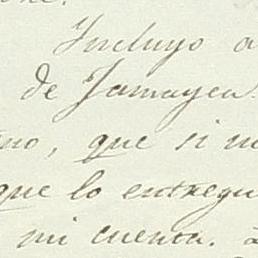 Incluyo a
de Jamayca
no, que si m
que lo entregu
mi cuenta.